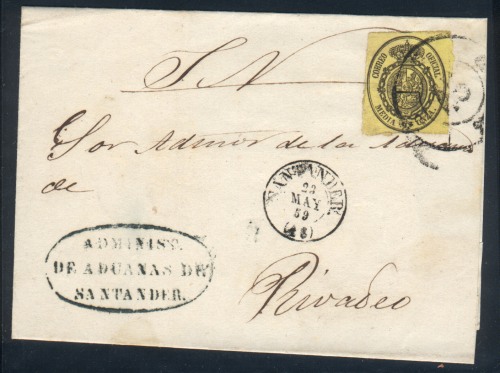 S. N.
CORREO OFICIAL.
MEDIA ONZA.
Sor Admor de la Aduana
de
SANTANDER
22
MAY
59
(18)
ADMINIST.
DE ADUANAS DE
SANTANDER.
Rivadeo